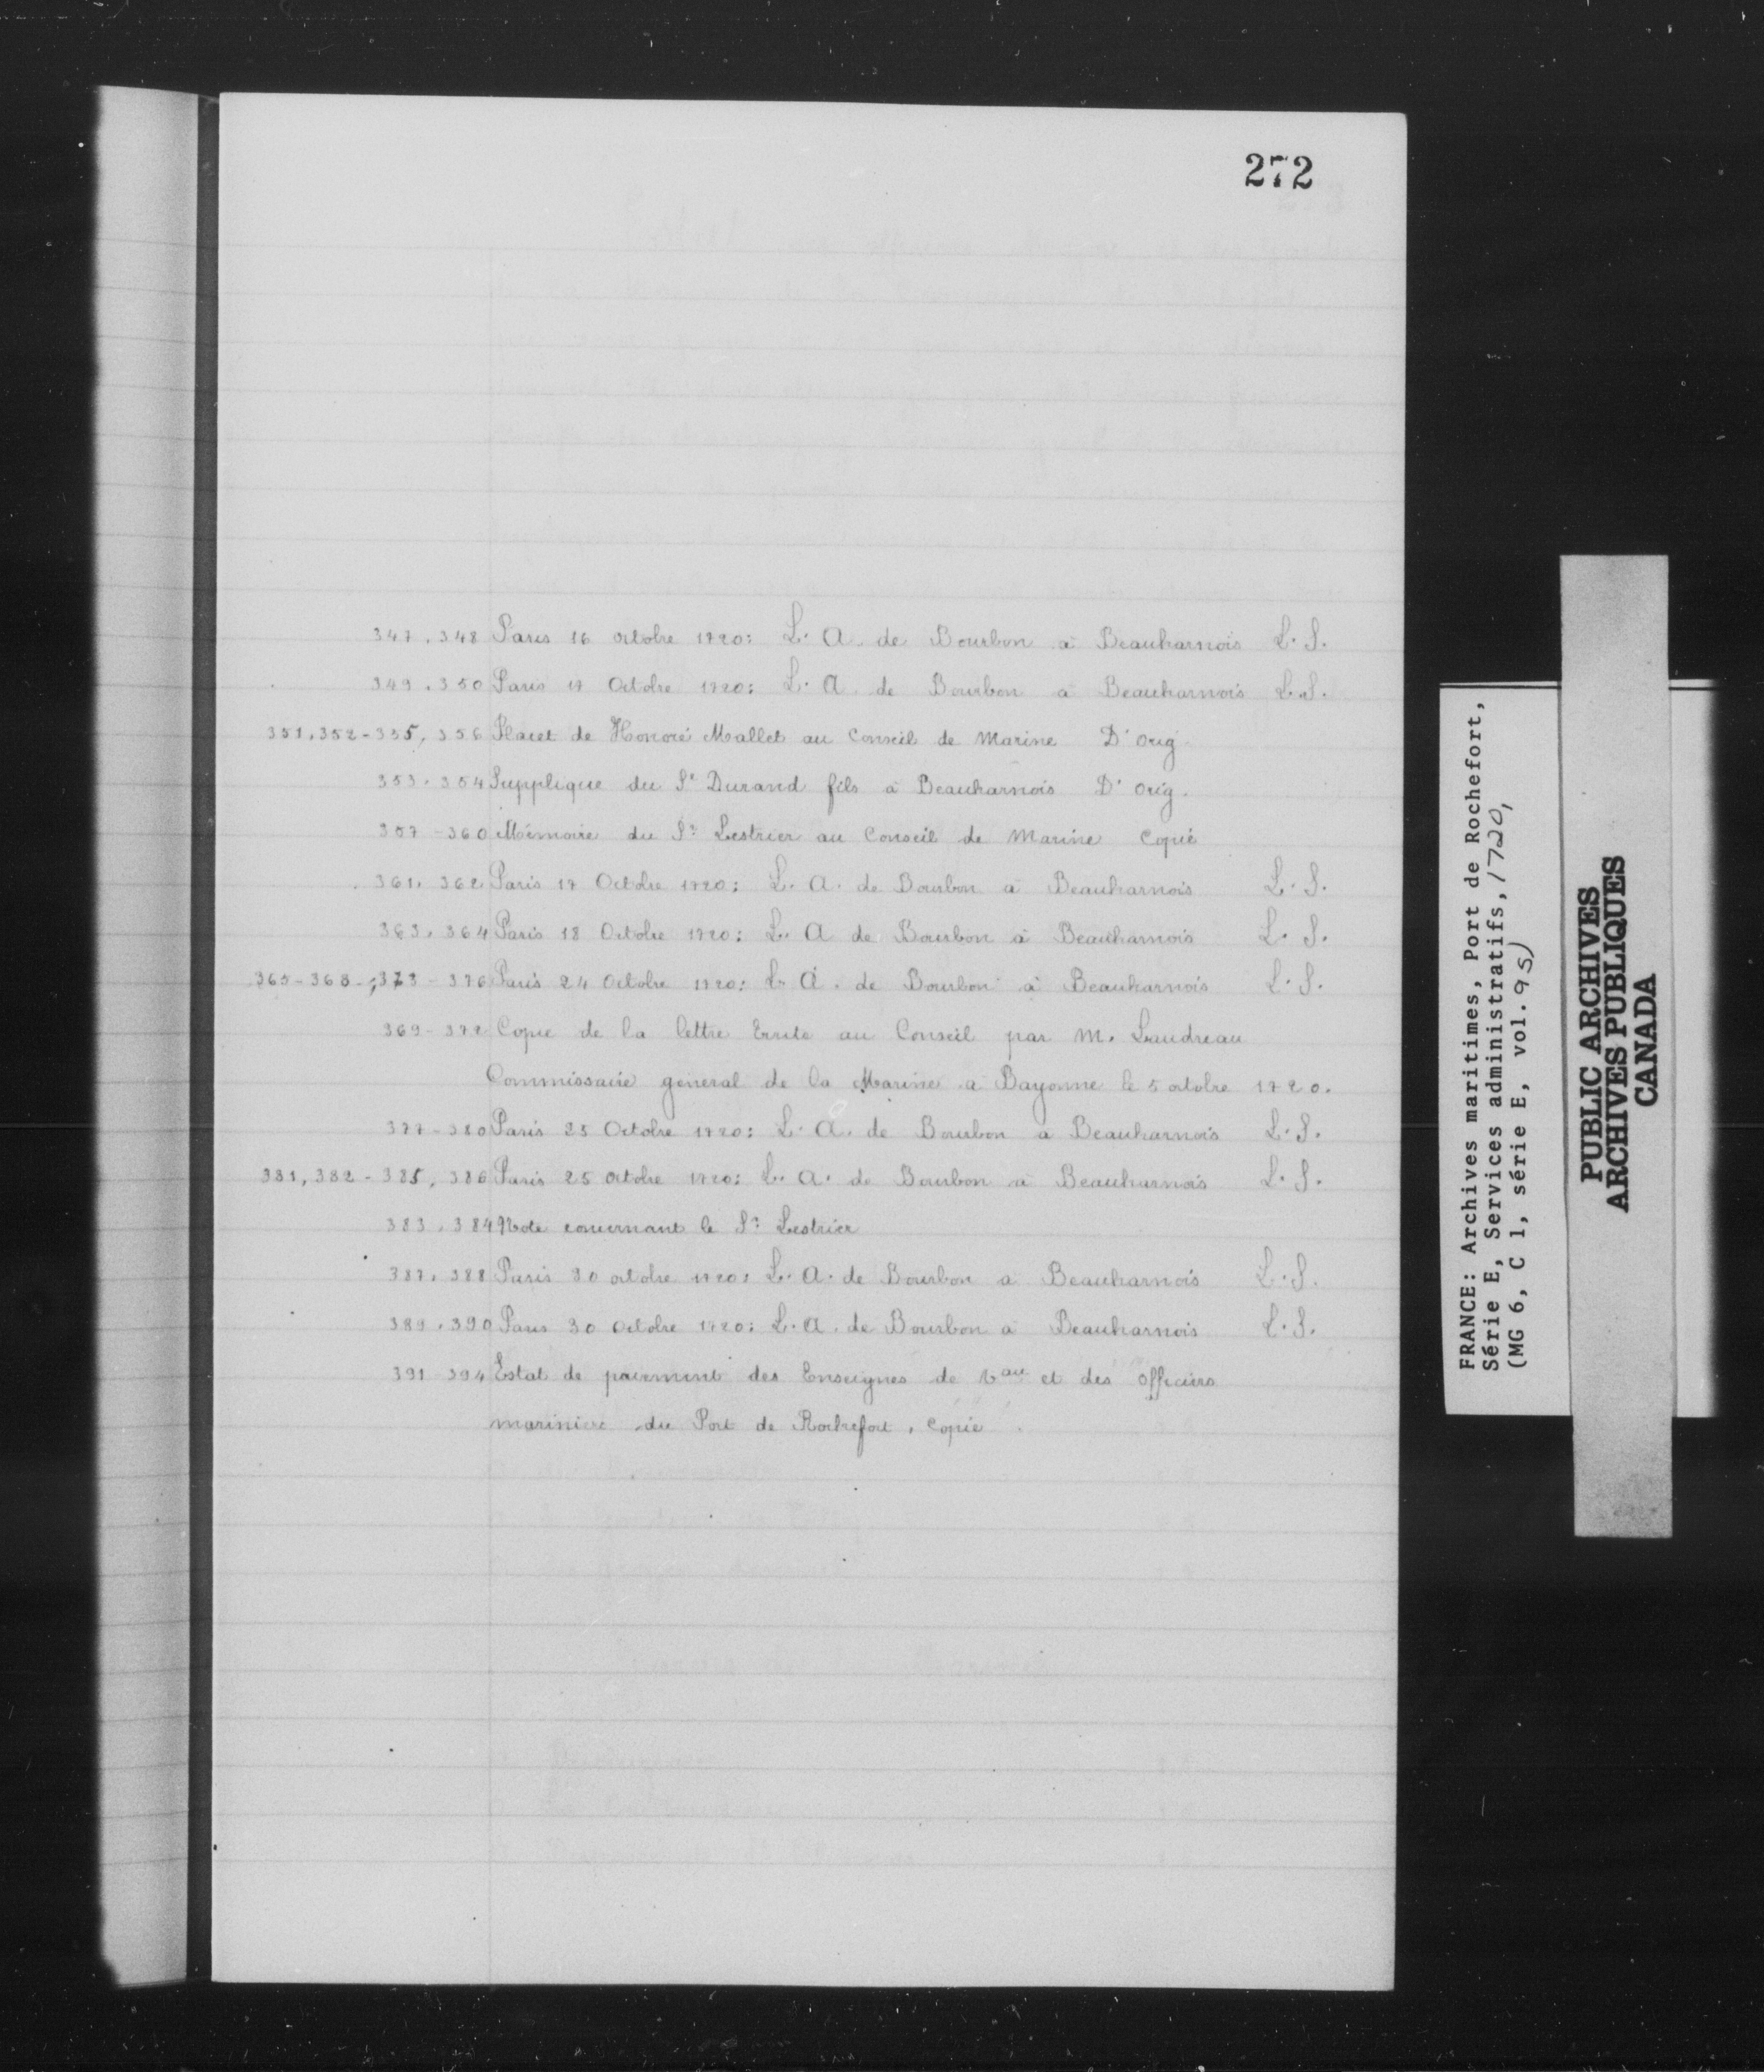 272
347, 348 Paris 16 octobre 1720: L. A. de Bourbon à Beauharnois L. S.
349, 350 Paris 17 Octobre 1720: L. A. de Bourbon a Beauharnois L. S.
351, 352 - 355, 356 Placet de Honoré Mallet au Conseil de Marine D' Orig.
353, 354 Supplique du Sr Durand fils à Beauharnois D' Orig.
357 - 360 Mémoire du Sr Lestrier au Conseil de Marine Copie
361, 362 Paris 17 Octobre 1720: L. A. de Bourbon à Beauharnois L. S.
363, 364 Paris 18 Octobre 1720: L. A de Bourbon à Beauharnois L. S.
365 - 368 -; 373 - 376 Paris 24 Octobre 1720: L. A. de Bourbon à Beauharnois L. S.
369 - 372 Copie de la lettre Ecrite au Conseil par M. Laudreau
Commissaire général de la Marine à Bayonne le 5 octobre 1720.
377 - 380 Paris 25 Octobre 1720: L. A. de Bourbon a Beauharnois L. S.
381, 382 - 385, 386 Paris 25 octobre 1720: L. A. de Bourbon à Beauharnois L. S.
383, 384 Note concernant le Sr Lestrier
387, 388 Paris 30 octobre 1720: L. A. de Bourbon a Beauharnois L. S.
389, 390 Paris 30 Octobre 1720: L. A. de Bourbon à Beauharnois L. S.
391 - 394 Estat de paiement des Enseignes de Vau et des Officiers
mariniers du Port de Rochefort, Copie.
FRANCE: Archives maritimes, Port de Rochefort,
Série E, Services administratifs, 1720,
(MG 6, C 1, série E, vol. 95)
PUBLIC ARCHIVES
ARCHIVES PUBLIQUES
CANADA